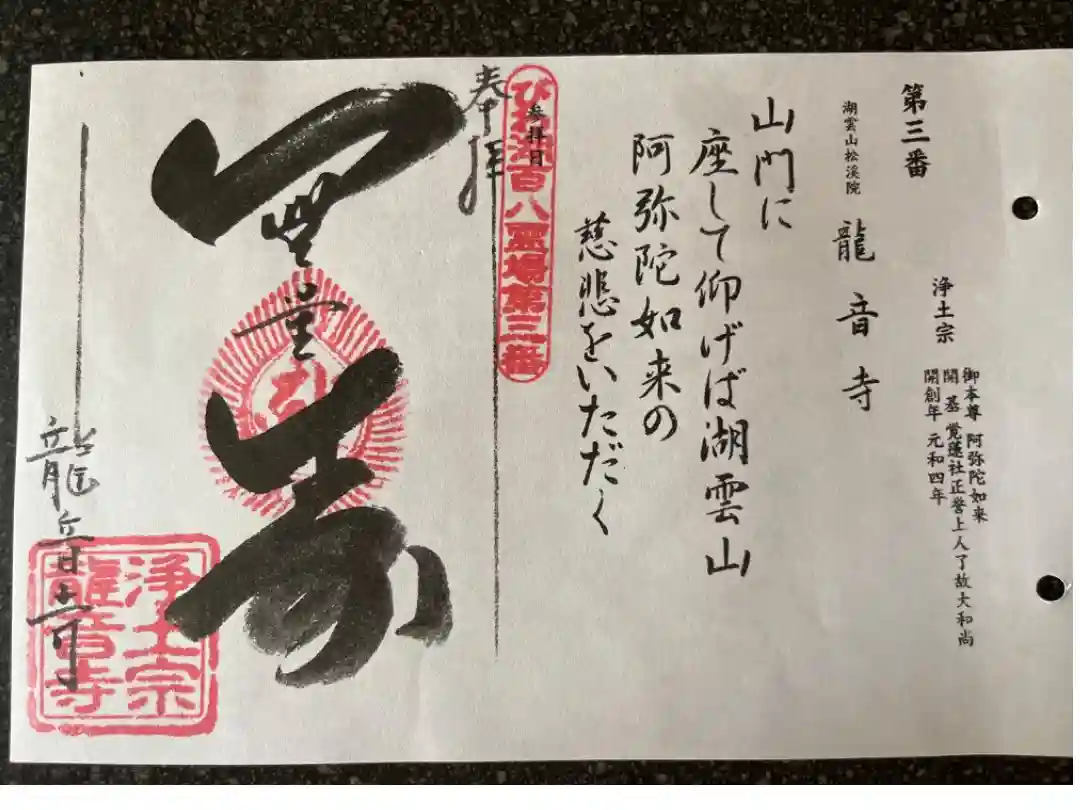 第三番
浄土宗
御本尊 阿弥陀如来
開基 覚蓮社正誉上人了故大和尚
開創年 元和四年
湖雲山松溪院
龍音寺
山門に
座して仰げば湖雲山
阿弥陀如来の
慈悲をいただく
参拝日
びわ湖百八霊場第三番
奉拝
無量寿
龍音寺
浄土宗
龍音寺